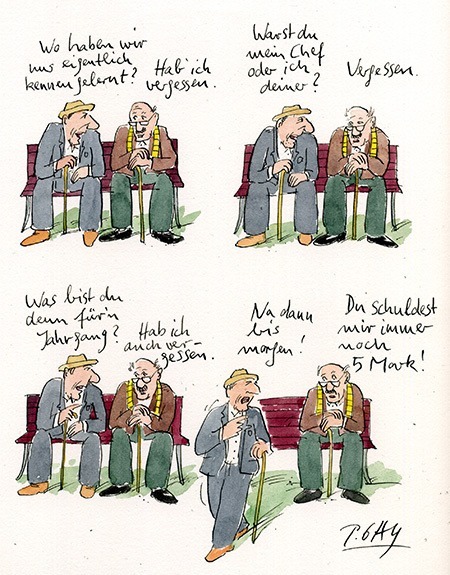 Wo haben wir
uns eigentlich
kennen gelernt?
Hab' ich
vergessen.
Warst du
mein Chef
oder ich
deiner?
Vergessen.
Was bist du
denn für'n
Jahrgang?
Hab ich
auch ver-
gessen.
Na dann
bis
morgen!
Du schuldest
mir immer
noch
5 Mark!
P. GAY